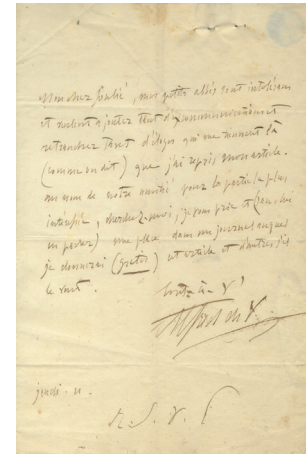 Mon cher Soulié, mes petits abbés sont intolérans
et veulent ajouter tant d'
retrancher tant d'éloges qui me
(comme on dit) que j'ai repris mon article.
au nom de notre amitié pour la partie la plus
cherchez-moi, je vous prie et (sans lui
en parler) une place dans un journal auquel
je donnerai (gratis) cet article et d'autres s'il
le veut.
tout à v
Alfred de V.
jeudi. 11.
R. S. V. P.